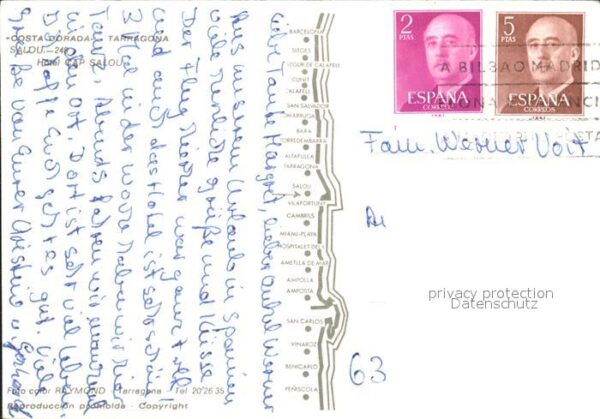 •COSTA DORADA• - TARRAGONA
SALOU.-249
Hotel CAP SALOU
Liebe Tante Margret, lieber Onkel Werner
Aus unserem Urlaub in Spanien
viele herzliche Grüße und Küsse
Der Flug hierher war ganz toll
und auch das Hotel ist sehr schön!
3 Mal in der Woche haben wir hier
Tanz. Abends fahren wir manchmal
in den Ort. Dort ist sehr viel
Hoffe Euch geht es gut. Viele
Grüße von Eurer Christine u. Gerhard
Foto color RAYMOND - Tarragona - Tel 20*26 35
Reproducción prohibida - Copyright
BARCELONA
SITGES
SEGUR DE CALAFELL
CUNIT
CALAFELL
SAN SALVADOR
COMARRUGA
BARA
TORREDEMBARRA
ALTAFULLA
TARRAGONA
SALOU
VILAFORTUNY
CAMBRILS
MIAMI-PLAYA
HOSPITALET DEL I.
AMETLLA DE MAR
AMPOLLA
AMPOSTA
SAN CARLOS
VINAROZ
BENICARLO
PEÑISCOLA
2
PTAS
ESPAÑA
CORREOS
5
PTAS
ESPAÑA
CORREOS
A BILBAO MADRID
Fam. Werner Voit
63
privacy protection
Datenschutz